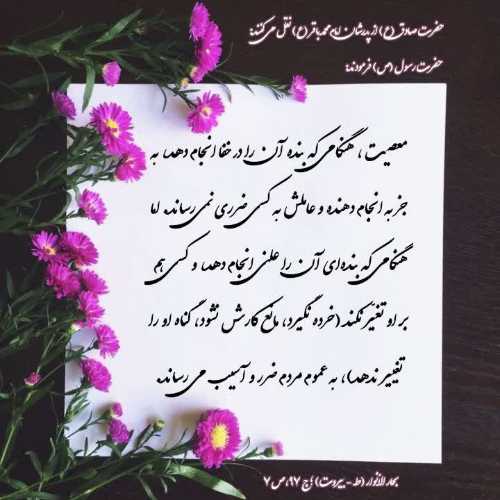 حضرت صادق (ع) از پدرشان امام محمد باقر (ع) نقل می کنند:
حضرت رسول (ص) فرمودند:
معصیت، هنگامی که بنده آن را در خفا انجام دهد، به
جز به انجام دهنده و عاملش به کسی ضرری نمی رساند. اما
هنگامی که بنده‌ای آن را علنی انجام دهد، و کسی هم
بر او تغیّر نکند (خرده نگیرد، مانع کارش نشود، گناه او را
تغییر ندهد)، به عموم مردم ضرر و آسیب می رساند.
بحار الانوار (ط - بیروت) ؛ ج ۹۷، ص ۷